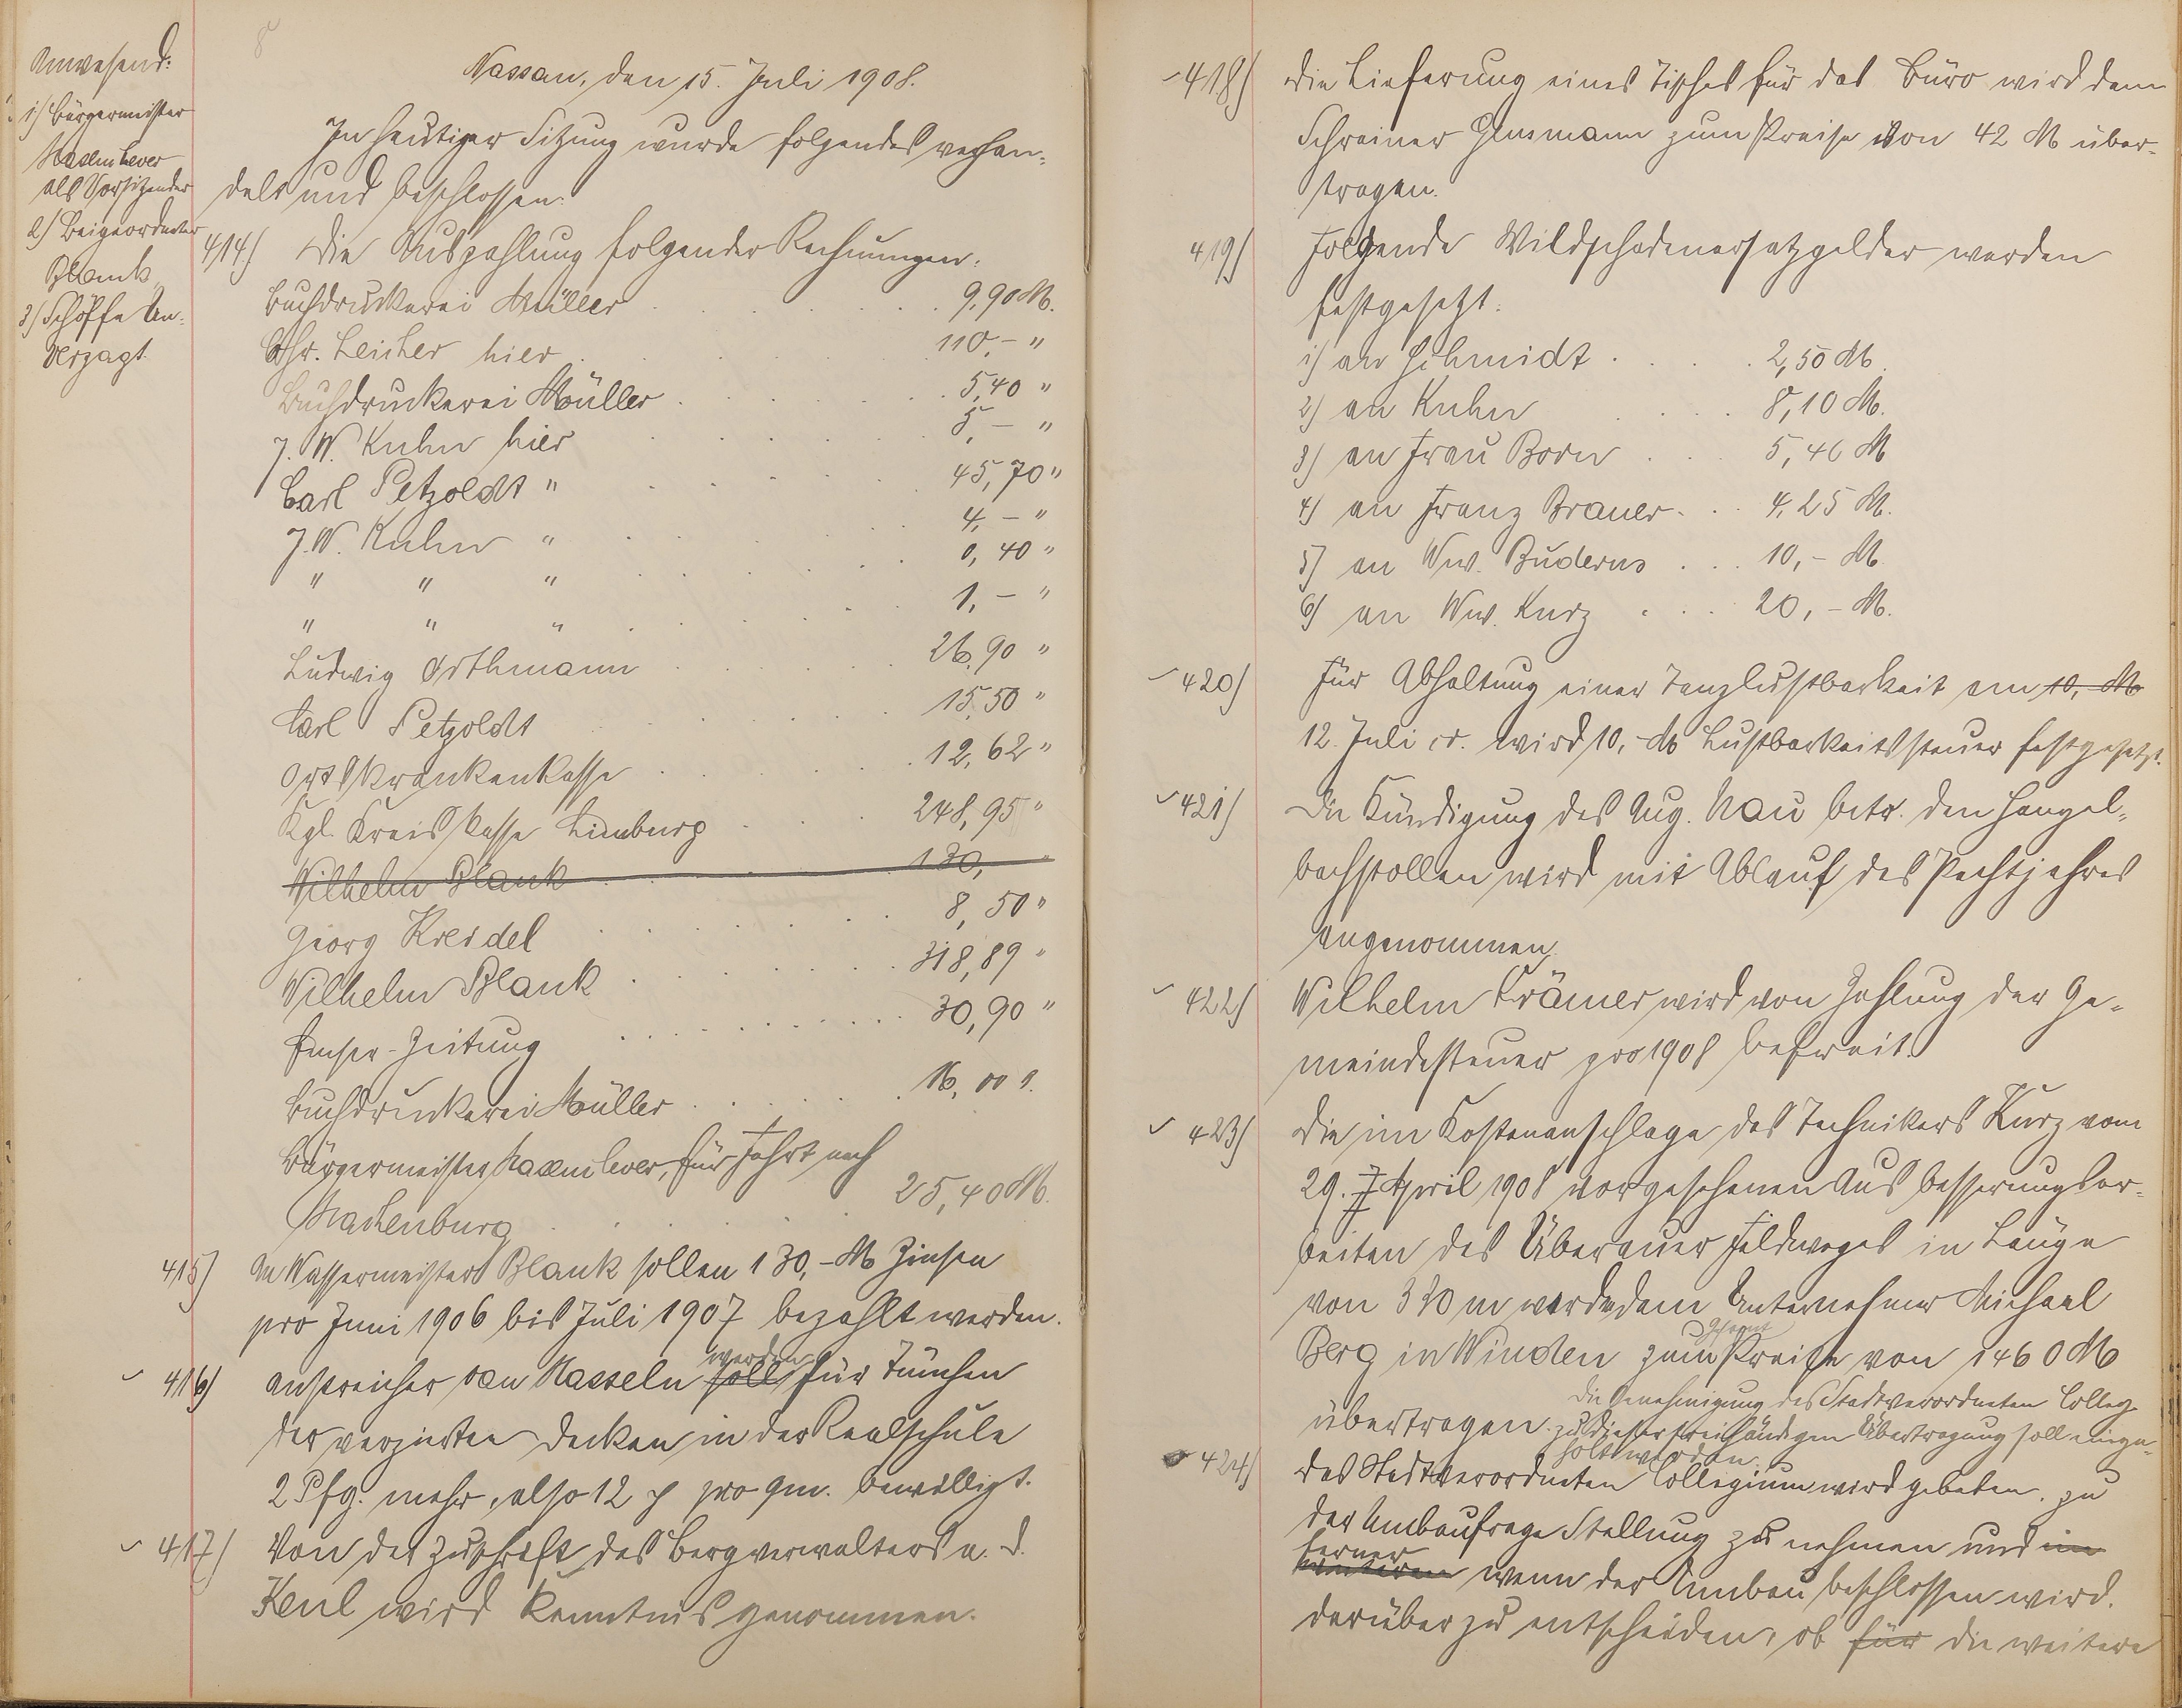 Anwesend:
1) Bürgermeister
Hasenclever
als Vorsitzender
2) Beigeordneter
Blank
3) Schöffe Un-
verzagt
Nassau, den 15. Juli 1908.
In heutiger Sitzung wurde folgendes verhan-
delt und beschlossen:
414) Die Auszahlung folgender Rechnungen:
Buchdruckerei Müller . . . . 9,90 M.
Chr. Leicher hier . . . 110,– "
Buchdruckerei Müller . . . . 5,40 "
J. W. Kuhn hier . . . . 5,– "
Carl Petzoldt " . . . . 45,70 "
J. W. Kuhn " . . . . 4,– "
" " " . . . . 0,40 "
" " " . . . . 1,– "
Ludwig Orthmann . . . . 26,90 "
Carl Petzoldt . . . . 15,50 "
Ortskrankenkasse . . . . 12,62 "
Kgl. Kreiskasse Limburg . . . 248,95 "
Wilhelm Blank . . . 130, "
Georg Kreidel . . . . 8,50 "
Wilhelm Blank . . . . 318,89 "
Emser-Zeitung . . . . 30,90 "
Buchdruckerei Müller . . . . 16,00 "
Bürgermeister Hasenclever, für Fahrt nach
Hachenburg . . . . 25,40 M.
415) An Wassermeister Blank sollen 130,– M Zinsen
pro Juni 1906 bis Juli 1907 bezahlt werden.
416) Anstreicher van Hasseln soll werden für Tünchen
der verzierten Decken in der Realschule
2 Pfg. mehr, also 12 ₰ pro qm. bewilligt.
417) Von der Zuschrift des Bergverwalters a. D.
Keul wird Kenntnis genommen.
418) Die Lieferung eines Tisches für das Büro wird dem
Schreiner zum Preise von 42 M über-
tragen.
419) Folgende Wildschadenersatzgelder werden
festgesetzt:
1) an Schmidt . . . . 2,50 M.
2) an Kuhn . . . 8,10 M.
3) an Frau Born . . . 5,40 M
4) an Franz Brauer . . . 4,25 M.
5) an Ww. Buderus . . . 10,– M
6) an Ww. Kurz . . . 20,– M.
420) Für Abhaltung einer Tanzlustbarkeit am 10,– M
12. Juli cr. wird 10,– M Lustbarkeitssteuer festgesetzt.
421) Die Kündigung des Aug. Nau betr. den Hangel-
bachstollen wird mit Ablauf des Pachtjahres
angenommen.
422) Wilhelm Krämer wird von Zahlung der Ge-
meindesteuer pro 1908 befreit.
423) Die im Kostenanschlage des Technikers Kurz vom
29. April 1908 vorgesehenen Ausbesserungsar-
beiten des Überauer Feldweges in Länge
von 330 m werden dem Unternehmer Michael
Berg in Winden zum Preise von 1460 M
übertragen. Die Genehmigung des Stadtverordneten Colleg.
zu dieser freihändigen Übertragung soll einge-
holt werden.
424) Das Stadtverordneten Collegium wird gebeten, zu
der Umbaufrage Stellung zu nehmen und im
weiteren ferner wenn der Umbau beschlossen wird,
darüber zu entscheiden, ob für die weitere